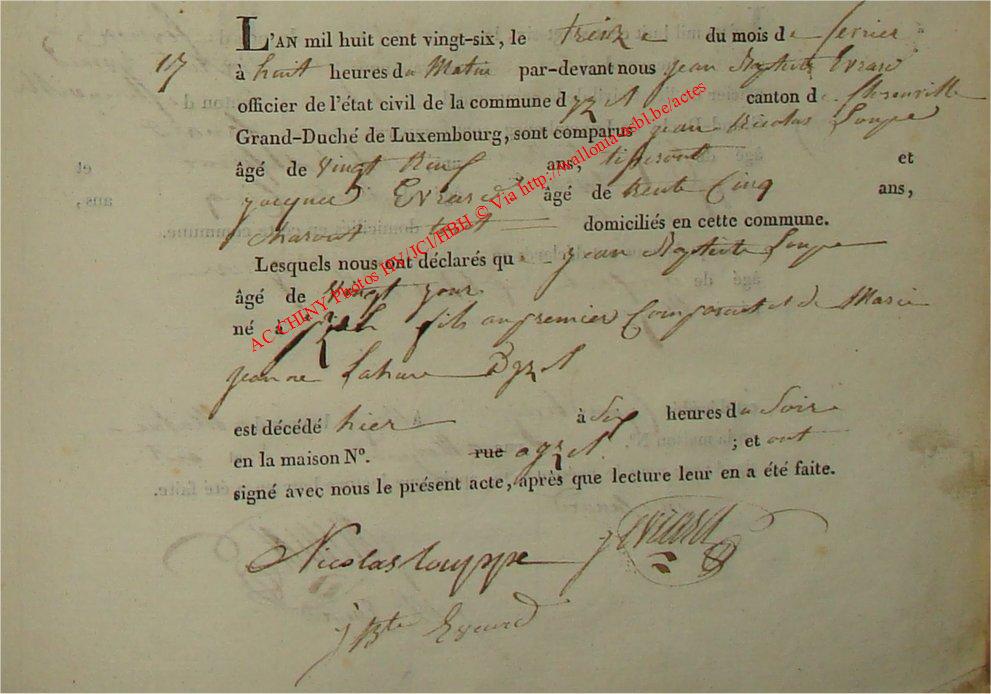 L'AN mil huit cent vingt-six, le treize du mois de fevrier
17 à huit heures du Matin par-devant nous jean Baptiste Evrard
officier de l'état civil de la commune d'izel canton de florenville
Grand-Duché de Luxembourg, sont comparus jean nicolas Loupe
âgé de vingt neuf ans, tisserant et
jacques Evrard âgé de trente Cinq ans,
domiciliés en cette commune.
Lesquels nous ont déclarés que jean Baptiste Loupe
âgé de Vingt jours
né à izel fils au premier Comparant et de Marie
jeanne Lahure D'izel
est décédé hier à six heures du Soir
en la maison N°. rue a izel ; et ont
signé avec nous le présent acte, après que lecture leur en a été faite.
Nicolas louppe j Evrard
j Bte Evrard
AC CHINY Photos HV/JCl/HBH © Via http://wallonia-asbl.be/actes